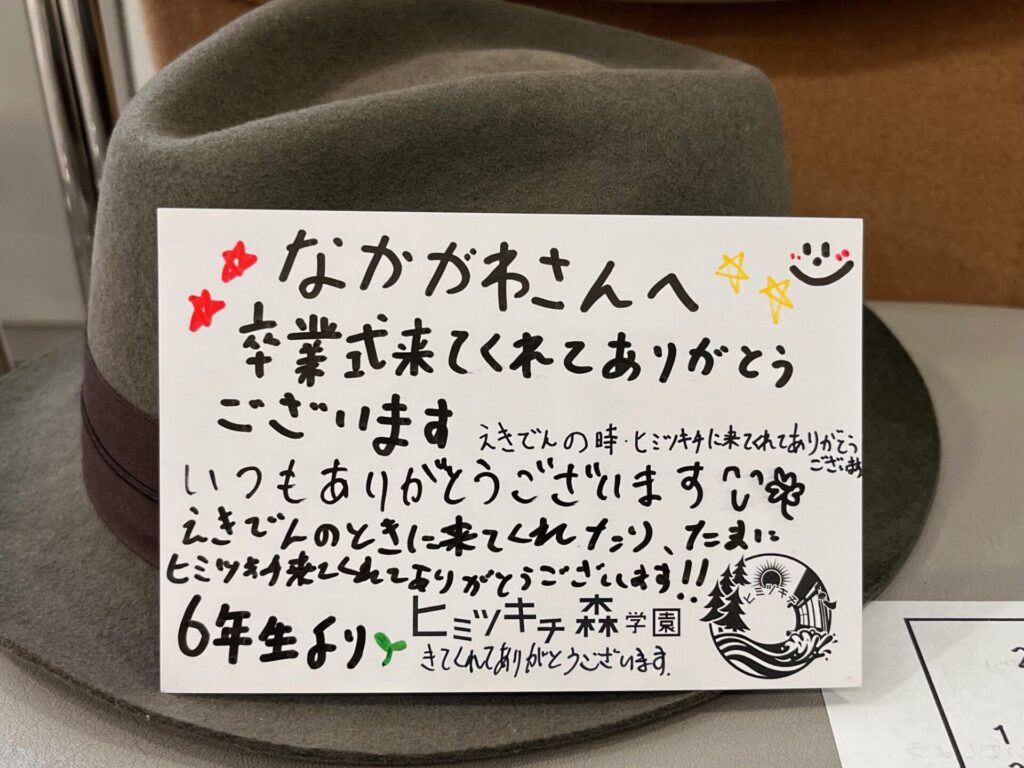 なかがわさんへ
卒業式来てくれてありがとう
ございます
えきでんの時・ヒミツキチに来てくれてありがとう
ございます
いつもありがとうございます
えきでんのときに来てくれたり、たまに
ヒミツキチ来てくれてありがとうございます!!
6年生より
ヒミツキチ森学園
きてくれてありがとうございます.
ヒミツキチ
2
1